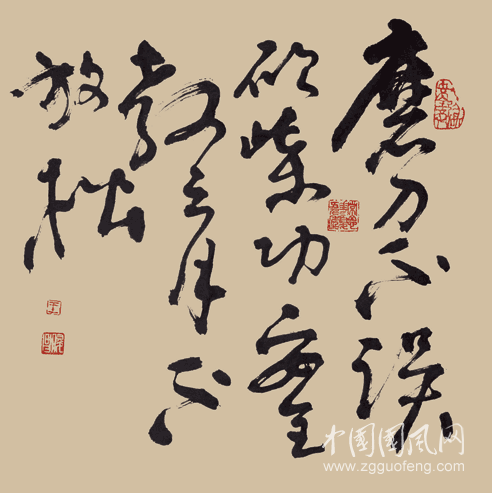 磨刀不误
砍柴功
教三月不
放松
中國國風网
www.zgguofeng.com